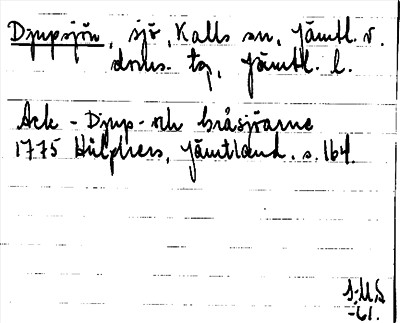 Djupsjön, sjö, Kalls sn, Jämtl. v.
doms. tg, Jämtl. l.
Ack - Djup- och Gråsjöarne
1775 Hülphers, Jämtland. s. 164.
S.U.S
-61.